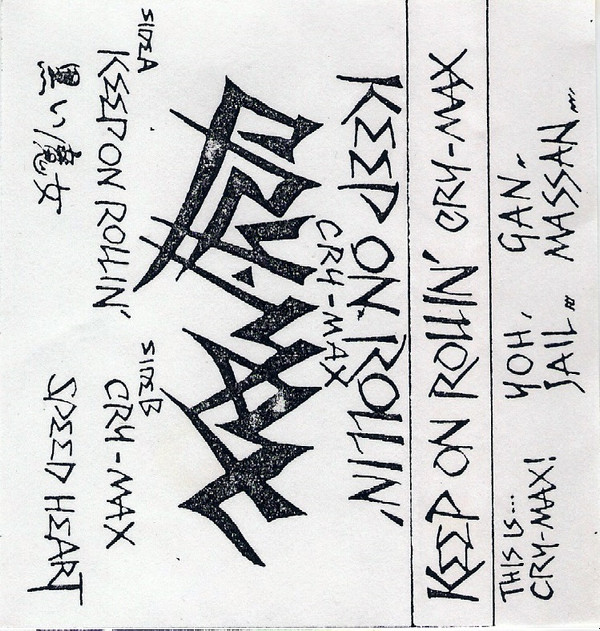 KEEP ON ROLLIN'
CRY-MAX
CRY-MAX
SIDE A
KEEP ON ROLLIN'
黒い魔女
SIDE B
CRY-MAX
SPEED HEART
KEEP ON ROLLIN' CRY-MAX
THIS IS...
CRY-MAX!
YOH,
JAIL...
GAN,
MASSAN...